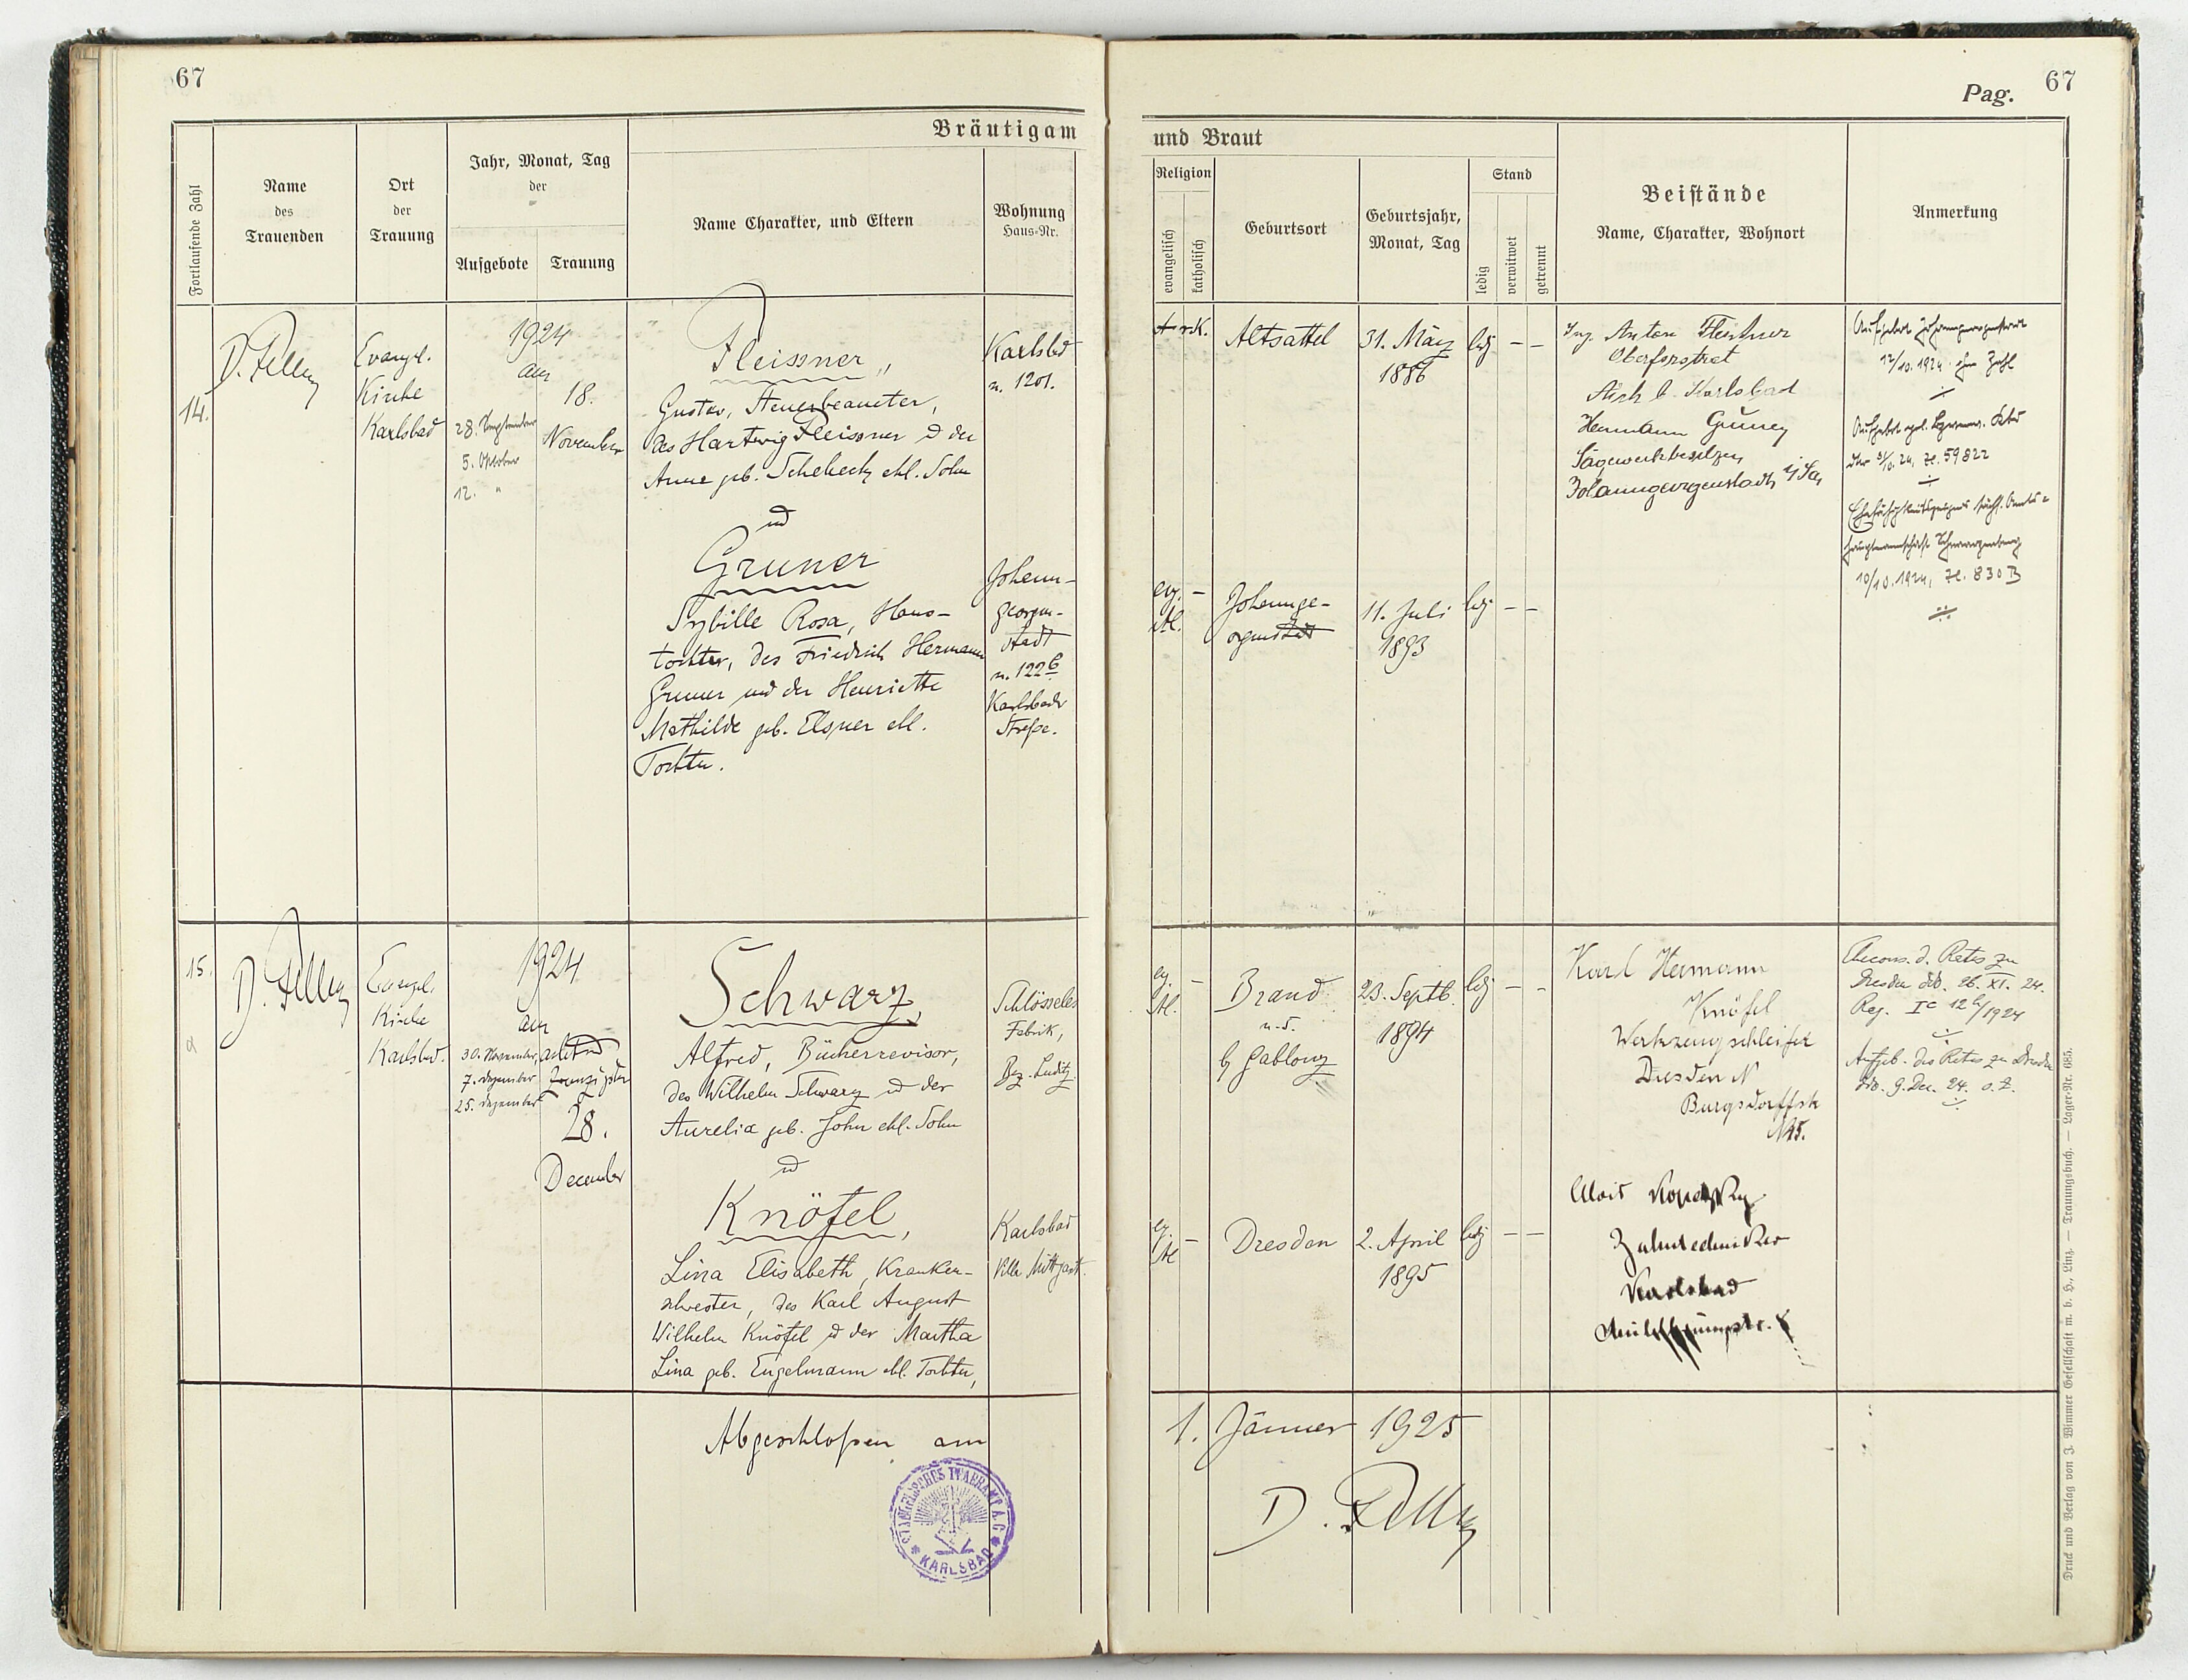 67
Bräutigam
Fortlaufende Zahl
Name
des
Trauenden
Ort
der
Trauung
Jahr, Monat, Tag
der
Aufgebote
Trauung
Name Charakter, und Eltern
Wohnung
Haus-Nr.
14.
Evangel.
Kirche
Karlsbad
1924
am
28. September
5. Oktober
12. "
18.
November
Fleissner,
Gustav, Steuerbeamter,
des Hartwig Fleissner u der
Anna geb. ehl. Sohn
und
Gruner
Sybille Rosa, Haus-
tochter, des Friedrich Hermann
Gruner und der Henriette
Mathilde geb. Elsner ehl.
Tochter.
Karlsbad
n. 1201.
Johann-
georgen-
stadt
n. 122 C
Karlsbader
Straße.
15.
Evangel.
Kirche
Karlsbad.
1924
am
30. November,
7. Dezember
25. Dezember
28.
December
Schwarz,
Alfred, Bücherrevisor,
des Wilhelm Schwarz u der
Aurelia geb. John ehl. Sohn
und
Knöfel,
Lina Elisabeth, Kranken-
schwester, des Karl August
Wilhelm Knöfel u der Martha
Lina geb. Engelmann ehl. Tochter,
Schlössels
Fabrik,
Bez. Luditz
Karlsbad
Villa
Abgeschloßen am
EVANGELISCHES PFARRAMT A.C.
KARLSBAD
Pag. 67
und Braut
Religion
evangelisch
katholisch
Geburtsort
Geburtsjahr,
Monat, Tag
Stand
ledig
verwitwet
getrennt
Beistände
Name, Charakter, Wohnort
Anmerkung
r.K.
Altsattel
31. März
1886
ledig – –
Ing. Anton Fleissner
Oberforstrat
Aich b. Karlsbad
Hermann Gruner
Sägewerksbesitzer
Johanngeorgenstadt i/Sa.
Aufgebot Johanngeorgenstadt
12/10. 1924 ohne Zahl
59822
Ehefähigkeitszeugnis sächs. Amts-
hauptmannschaft Schwarzenberg
10/10. 1924, Zl. 830 B
ev. –
Johannge-
orgenstadt
11. Juli
1893
ledig – –
ev. –
Brand
b Gablonz
23. Septb.
1894
ledig – –
Karl Hermann
Knöfel
Werkzeugschleifer
Dresden N
Burgsdorffstr
N 45.
d. Rates zu
Dresden ddo. 26. XI. 24.
Reg. I c 12 /1924
Aufgeb. des Rates zu Dresden
ddo. 9. Dez. 24. o. Z.
ev. –
Dresden
2. April
1895
ledig – –
Alois
Zahntechniker
Karlsbad
1. Jänner 1925
Druck und Verlag von J. Wimmer Gesellschaft m. b. H., Linz. — Trauungsbuch. — Lager-Nr. 685.